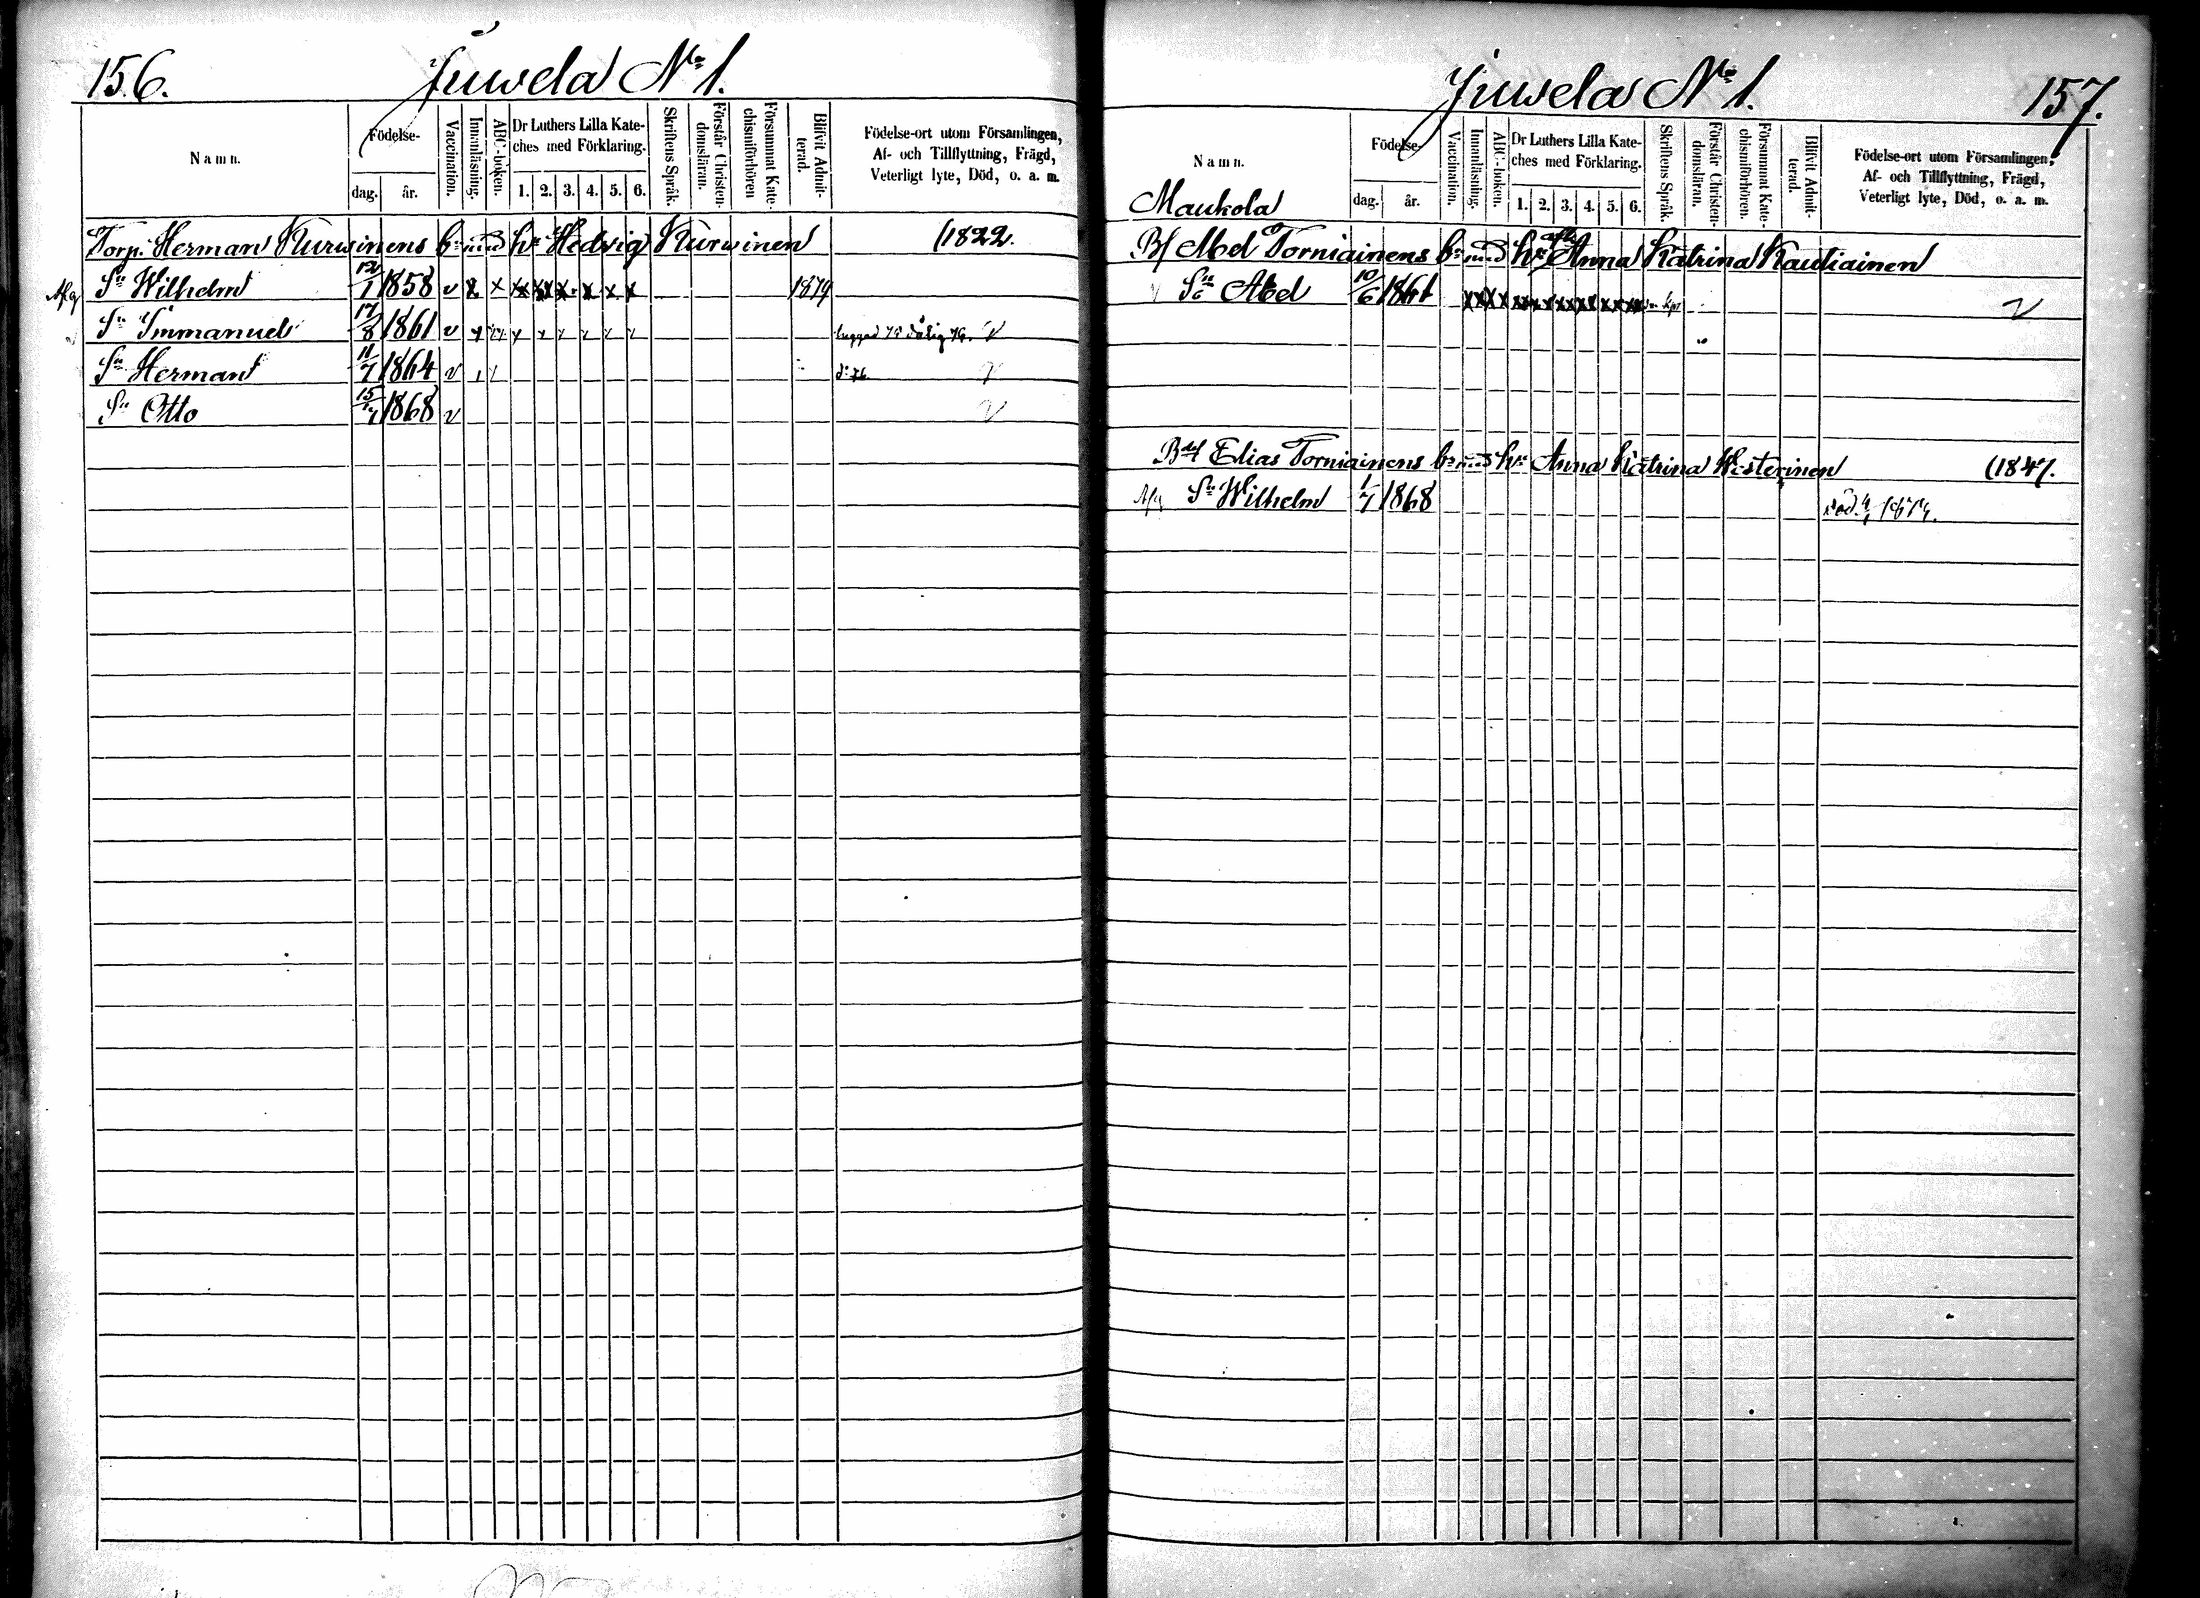 156. Juwela No 1.
Namn. Födelse- dag. år. Vaccination. Innanläsning. ABC-boken. Dr Luthers Lilla Kateches med Förklaring. 1. 2. 3. 4. 5. 6. Skriftens Språk. Förstår Christendomsläran. Försummat Katechismiförhören Blifvit Admitterad. Födelse-ort utom Församlingen, Af- och Tillflyttning, Frägd, Veterligt lyte, Död, o. a. m.
Torp. Herman Kurwinens b. med h. Hedvig Kurwinen (1822.
Sn Wilhelm 12/1 1858 v x x xx xx x x x x 1879
Sn Immanuel 17/8 1861 v x x x x x x x v
Sn Herman 11/7 1864 v d:o 76. v
Sn Otto 15/7 1868 v v
Juwela No 1. 157.
Namn. Födelse- dag. år. Vaccination. Innanläsning. ABC-boken. Dr Luthers Lilla Kateches med Förklaring. 1. 2. 3. 4. 5. 6. Skriftens Språk. Förstår Christendomsläran. Försummat Katechismiförhören. Blifvit Admitterad. Födelse-ort utom Församlingen, Af- och Tillflyttning, Frägd, Veterligt lyte, Död, o. a. m.
Maukola
Bf Abel Torniainens b. med h. Anna Katrina Kautiainen
Sn Abel 10/6 1861 v
Elias Torniainens b. med h. Anna Katrina Westerinen (1847.
Sn Wilhelm 1/7 1868 död 1874.